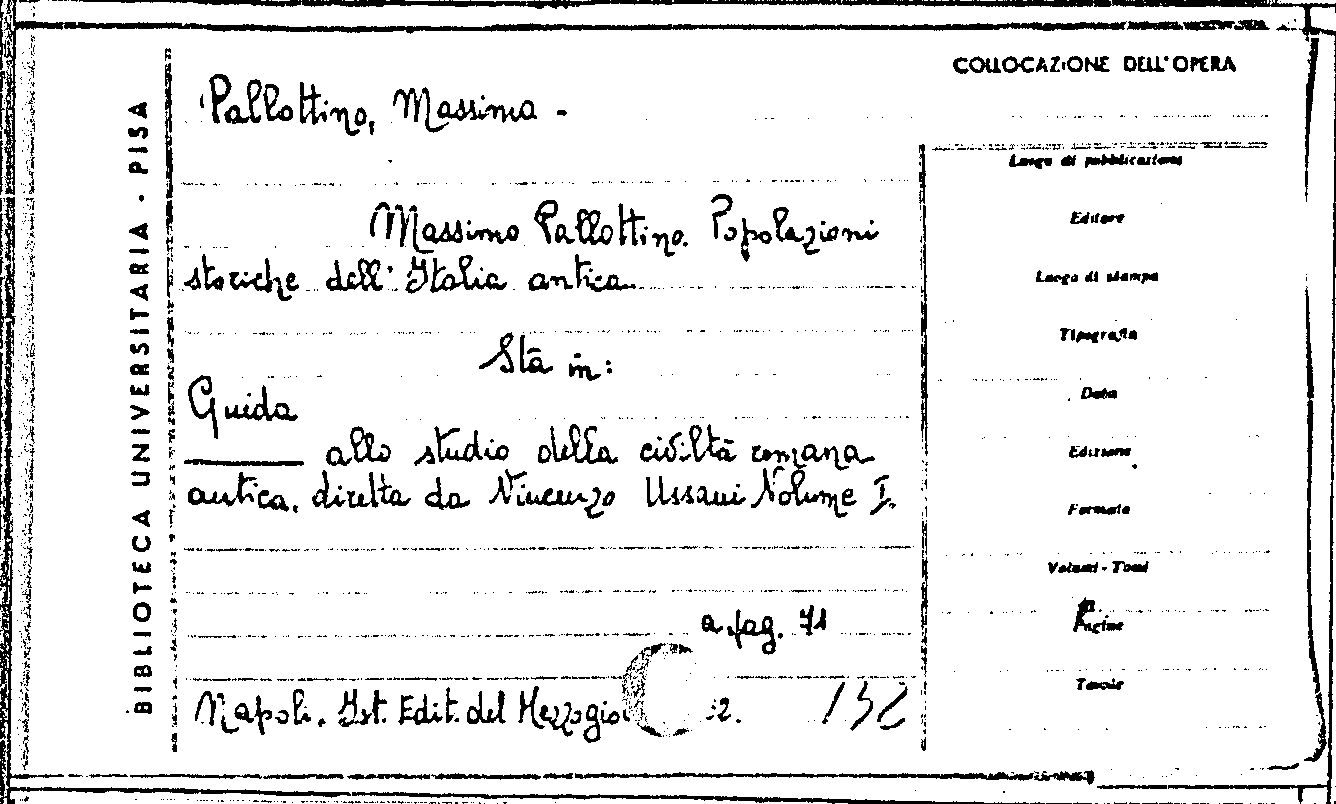 COLLOCAZIONE DELL'OPERA
BIBLIOTECA UNIVERSITARIA - PISA
Pallottino, Massimo -
Massimo Pallottino. Popolazioni
storiche dell'Italia antica.
Stà in:
Guida
allo studio della civiltà romana
antica, diretta da Vincenzo Ussani Volume I.
a pag. 71
Napoli. Ist. Edit. del 132
Luogo di pubblicazione
Editore
Luogo di stampa
Tipografia
Data
Edizione
Formato
Volumi - Tomi
Pagine
Tavole